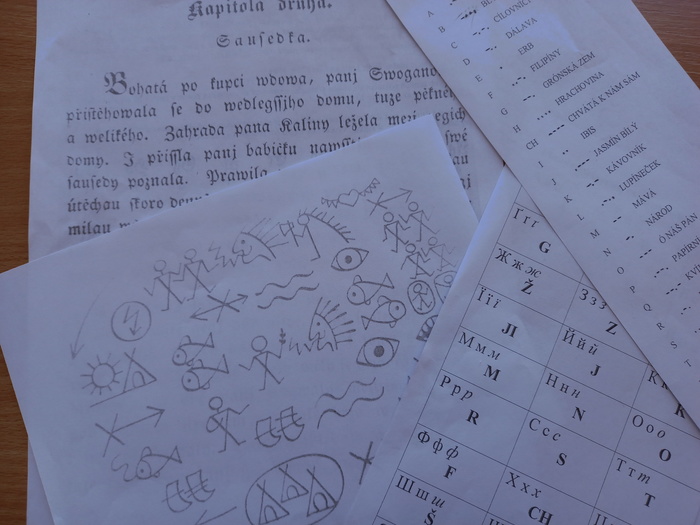 Kapitola druhá.
Sausedka.
Bohatá po kupci wdowa, panj
přistěhowala se do wedlegssjho domu, tuze
a welikého. Zahrada pana Kaliny ležela mezi
domy. J přissla panj babičku
sausedy poznala. Prawila
útěchau skoro
milau
A
B -...
C -.-. CÍLOVNÍCI
D -.. DÁLAVA
E . ERB
F ..-. FILIPÍNY
G --. GRÓNSKÁ ZEM
H .... HRACHOVINA
CH ---- CHVÁTÁ K NÁM SÁM
I .. IBIS
J .--- JASMÍN BÍLÝ
K -.- KÁVOVNÍK
L .-.. LUPÍNEČEK
M -- MÁVÁ
N -. NÁROD
O --- Ó NÁŠ
P
Q
R
S
T
Ґґґ G
Жжж Ž Ззз Z
Її ї JI Ййй J K
Ммм M Ннн N Ооо O
Ррр R Ссс S Ттт T
Ффф F Ххх CH
Шшш Š